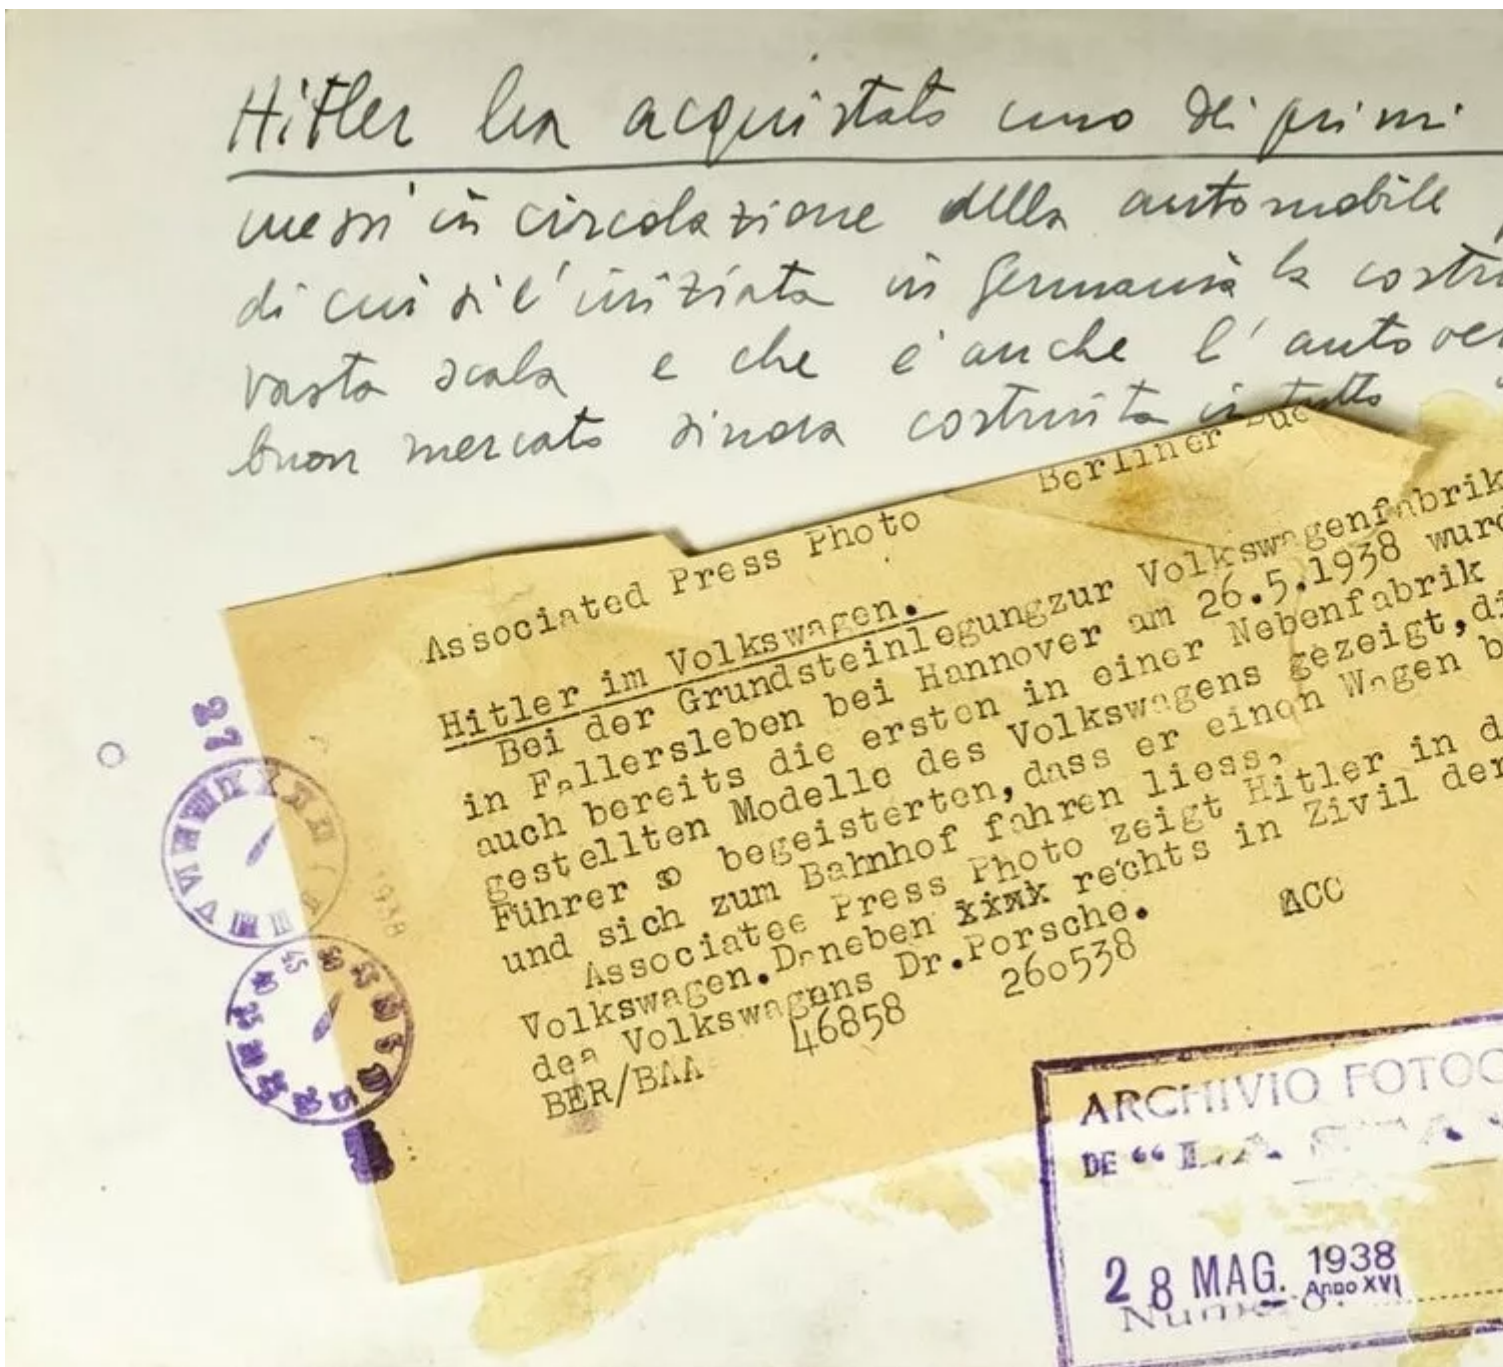 Hitler ha acquistato uno dei primi
messi in circolazione della automobile
di cui si e' iniziata in Germania la costru
vasta scala e che e' anche l' autove
buon mercato sinora costruita in tutto
Berliner
Associated Press Photo
Hitler im Volkswagen.
Bei der Grundsteinlegungzur Volkswagenfabrik
in Fallersleben bei Hannover am 26.5.1938 wurd
auch bereits die ersten in einer Nebenfabrik
gestellten Modelle des Volkswagens gezeigt,di
Führer so begeisterten,dass er einen Wagen b
und sich zum Bahnhof fahren liess.
Associatee Press Photo zeigt Hitler in d
Volkswagen.Daneben xxxx rechts in Zivil der
des Volkswagens Dr.Porsche.
BER/BAA 46858 260538 ACC
27
1938
45 50 55 5 10 15 20 25 30 35 40
ARCHIVIO FOTOG
DE “LA STA
28 MAG. 1938
Anno XVI
Numero